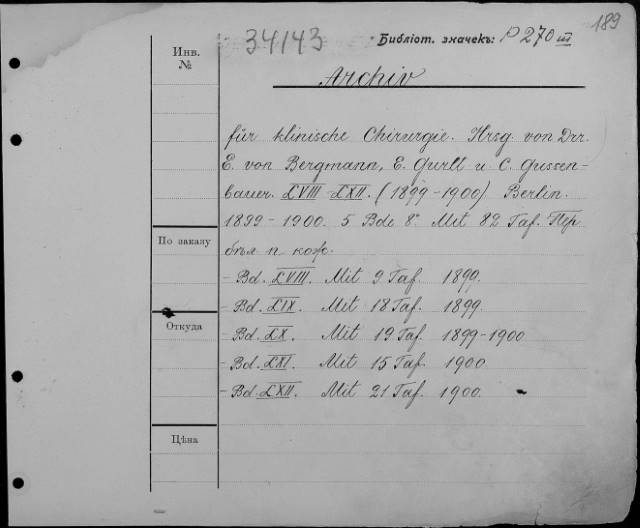 189
34143
Библіот. значекъ: P 270 III
Инв.
№
Archiv
für klinische Chirurgie. Hrsg. von Drr.
E. von Bergmann, E. Gurlt u C. Gussen-
bauer. LVIII-LXII. (1899-1900) Berlin.
1899-1900. 5 Bde 8º. Mit 82 Taf. Пер
По заказу
п кож.
- Bd. LVIII. Mit 9 Taf. 1899.
- Bd. LIX. Mit 18 Taf. 1899.
Откуда
- Bd. LX. Mit 19 Taf. 1899-1900
- Bd. LXI. Mit 15 Taf. 1900
- Bd. LXII. Mit 21 Taf. 1900.
Цѣна